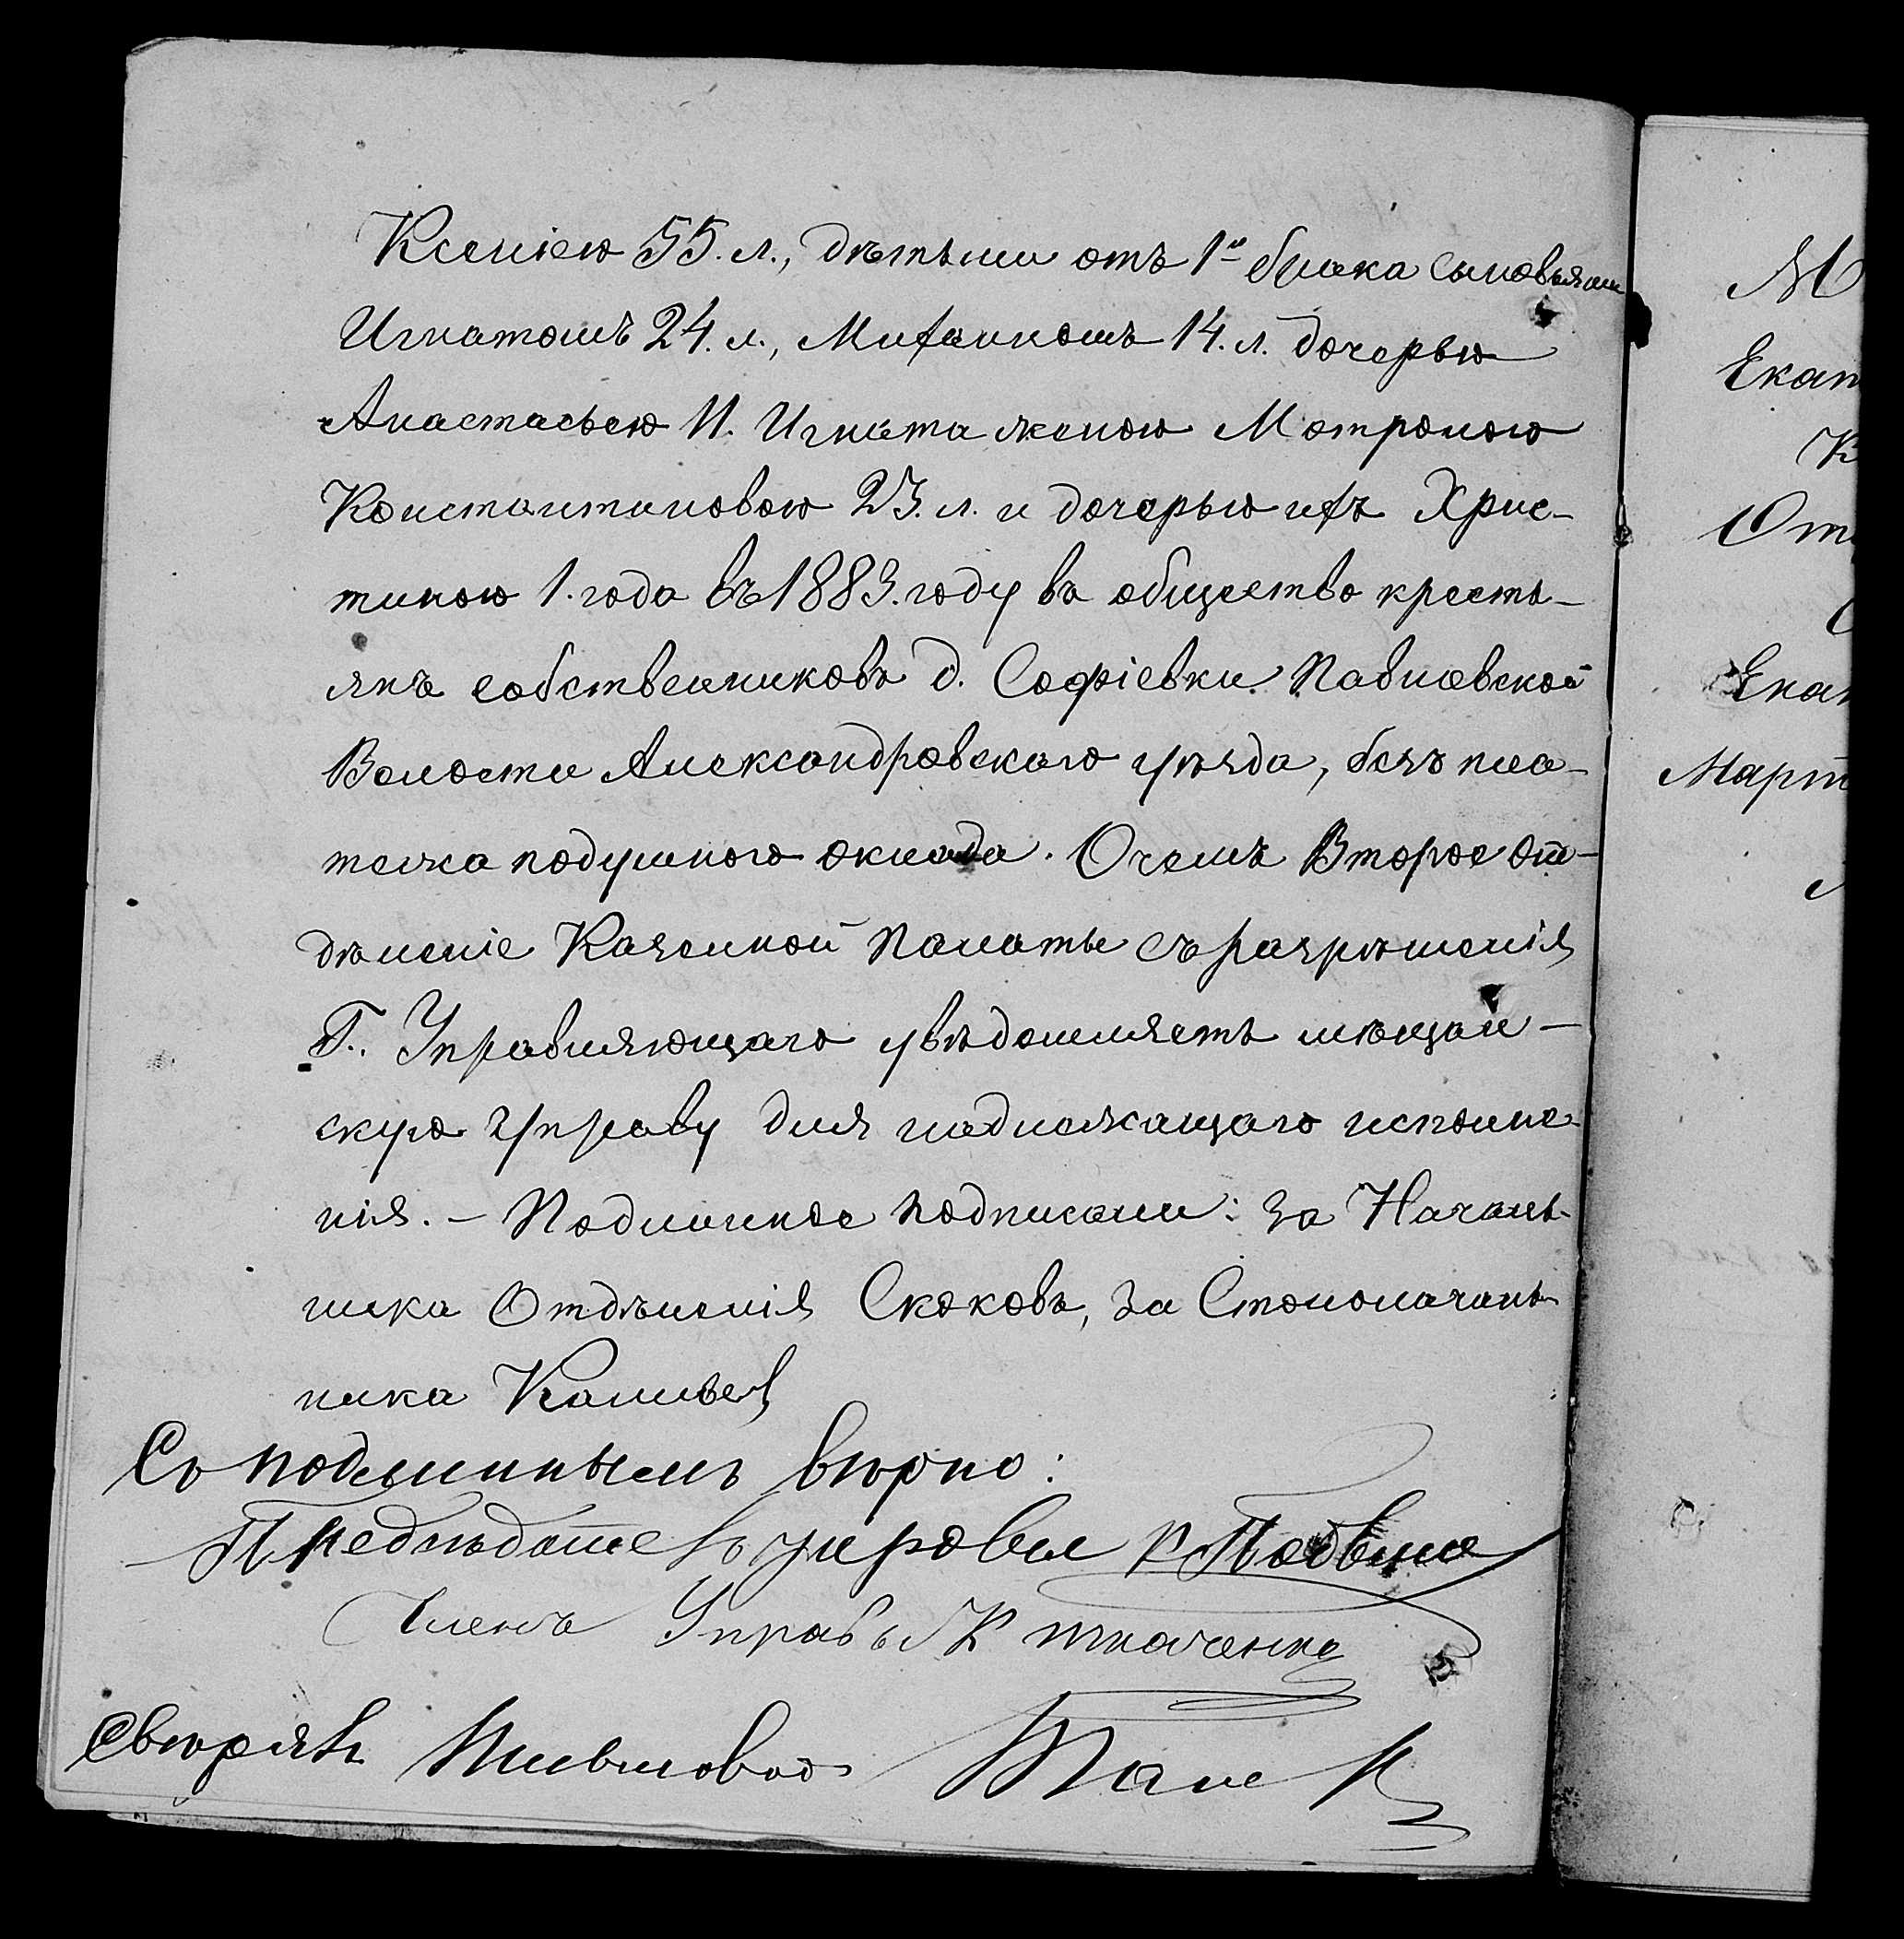 Ксеніею 55. л., дѣтьми отъ 1го брака сыновьями
Игнатомъ 24. л., Михаиломъ 14. л. дочерью
Анастасьею 11. Игната женою Мотроною
Константиновою 23. л. и дочерью ихъ Хрис-
тиною 1. года въ 1883. году въ общество кресть-
янъ собственниковъ д. Софіевки Павловской
Волости Александровскаго уѣзда, безъ пла-
тежа подушного оклада. О чемъ Второе От-
дѣленіе Казенной Палаты съ разрѣшенія
Г. Управляющаго увѣдомляетъ мѣщан-
скую управу для надлежащаго исполне-
нія. – Подлинное подписали: За Началь-
ника Отдѣленія Скоковъ, За Столоначаль-
ника
Съ подлиннымъ вѣрно:
Предсѣдатель управы
Членъ Управы К Ткаченко
Свѣрялъ
М
Екат
К
От
Екат
Март